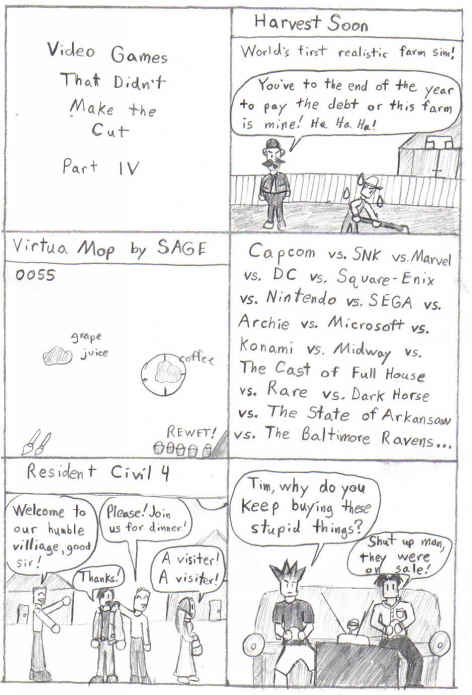 Video Games
That Didn't
Make the
Cut
Part IV
Harvest Soon
World's first realistic farm sim!
You've to the end of the year
to pay the debt or this farm
is mine! Ha Ha Ha!
Virtua Mop by SAGE
0055
grape
juice
coffee
REWET!
Capcom vs. SNK vs. Marvel
vs. DC vs. Square-Enix
vs. Nintendo vs. SEGA vs.
Archie vs. Microsoft vs.
Konami vs. Midway vs.
The Cast of Full House
vs. Rare vs. Dark Horse
vs. The State of Arkansaw
vs. The Baltimore Ravens...
Resident Civil 4
Welcome to
our humble
villiage, good
sir!
Please! Join
us for dinner!
Thanks!
A visiter!
A visiter!
Tim, why do you
keep buying these
stupid things?
Shut up man,
they were
on sale!